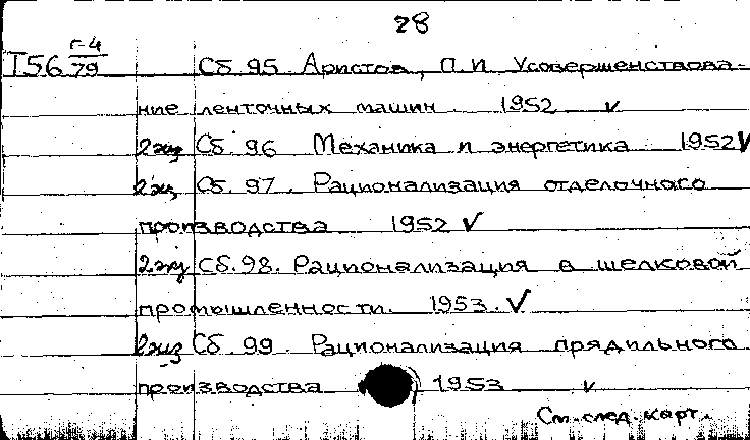 28
Г-4
I56 79 Сб. 95. Аристов, П. И. Усовершенствова-
ние ленточных машин. 1952 ✓
2 экз Сб. 96 Механика и энергетика 1952 ✓
2 экз Сб. 97. Рационализация отделочного
производства 1952 ✓
2 экз Сб. 98. Рационализация в шелковой
промышленности. 1953. ✓
2 экз Сб. 99. Рационализация прядильного
производства 1953 ✓
См. след. карт.